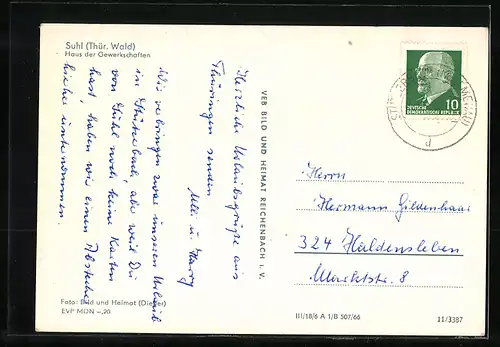 Suhl (Thür. Wald)
Haus der Gewerkschaften
Herzliche Urlaubsgrüße aus
Thüringen senden
Ulli u. Harry
Wir verbringen zwar unseren Urlaub
in Stützerbach, aber weil Du
von Suhl noch keine Karten
hast, haben wir einen Abstecher
hierher unternommen.
Foto: Bild und Heimat (Dieger)
EVP MDN –,20
VEB BILD UND HEIMAT REICHENBACH i. V.
DEUTSCHE
DEMOKRATISCHE REPUBLIK
10
d
Herrn
Hermann Gildenhaar
324 Haldensleben
Marktstr. 8
III/18/6 A 1/B 507/66
11/3387